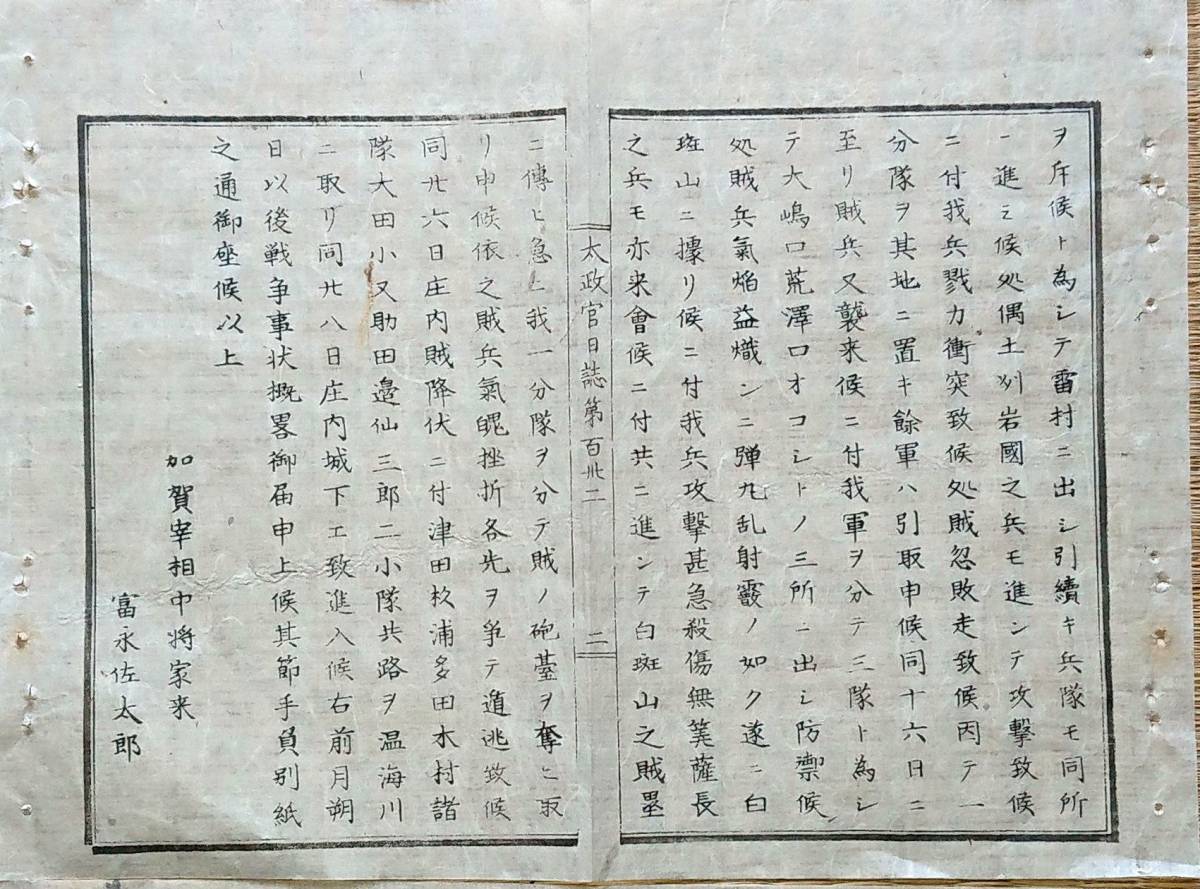 ヲ斥候ト為シテ雷村ニ出シ引續キ兵隊モ同所
一進ミ候処偶土州岩國之兵モ進ンテ攻撃致候
ニ付我兵戮力衝突致候処賊忽敗走致候因テ一
分隊ヲ其地ニ置キ餘軍ハ引取申候同十六日ニ
至リ賊兵又襲来候ニ付我軍ヲ分テ三隊ト為シ
テ大嶋口荒澤口オコシトノ三所ニ出シ防禦候
処賊兵氣焔益熾ンニ彈丸乱射霰ノ如ク遂ニ白
斑山ニ據リ候ニ付我兵攻撃甚急殺傷無筭薩長
之兵モ亦来會候ニ付共ニ進ンテ白斑山之賊塁
太政官日誌第百卅二
二
ニ傳ヒ急ニ我一分隊ヲ分テ賊ノ砲䑓ヲ奪ヒ取
リ申候依之賊兵氣魄挫折各先ヲ争テ遁逃致候
同廿六日庄内賊降伏ニ付津田杦浦多田木村諸
隊大田小又助田邉仙三郎二小隊共路ヲ温海川
ニ取リ同廿八日庄内城下エ致進入候右前月朔
日以後戦争事状概畧御届申上候其節手負別紙
之通御座候以上
加賀宰相中将家来
富永佐太郎